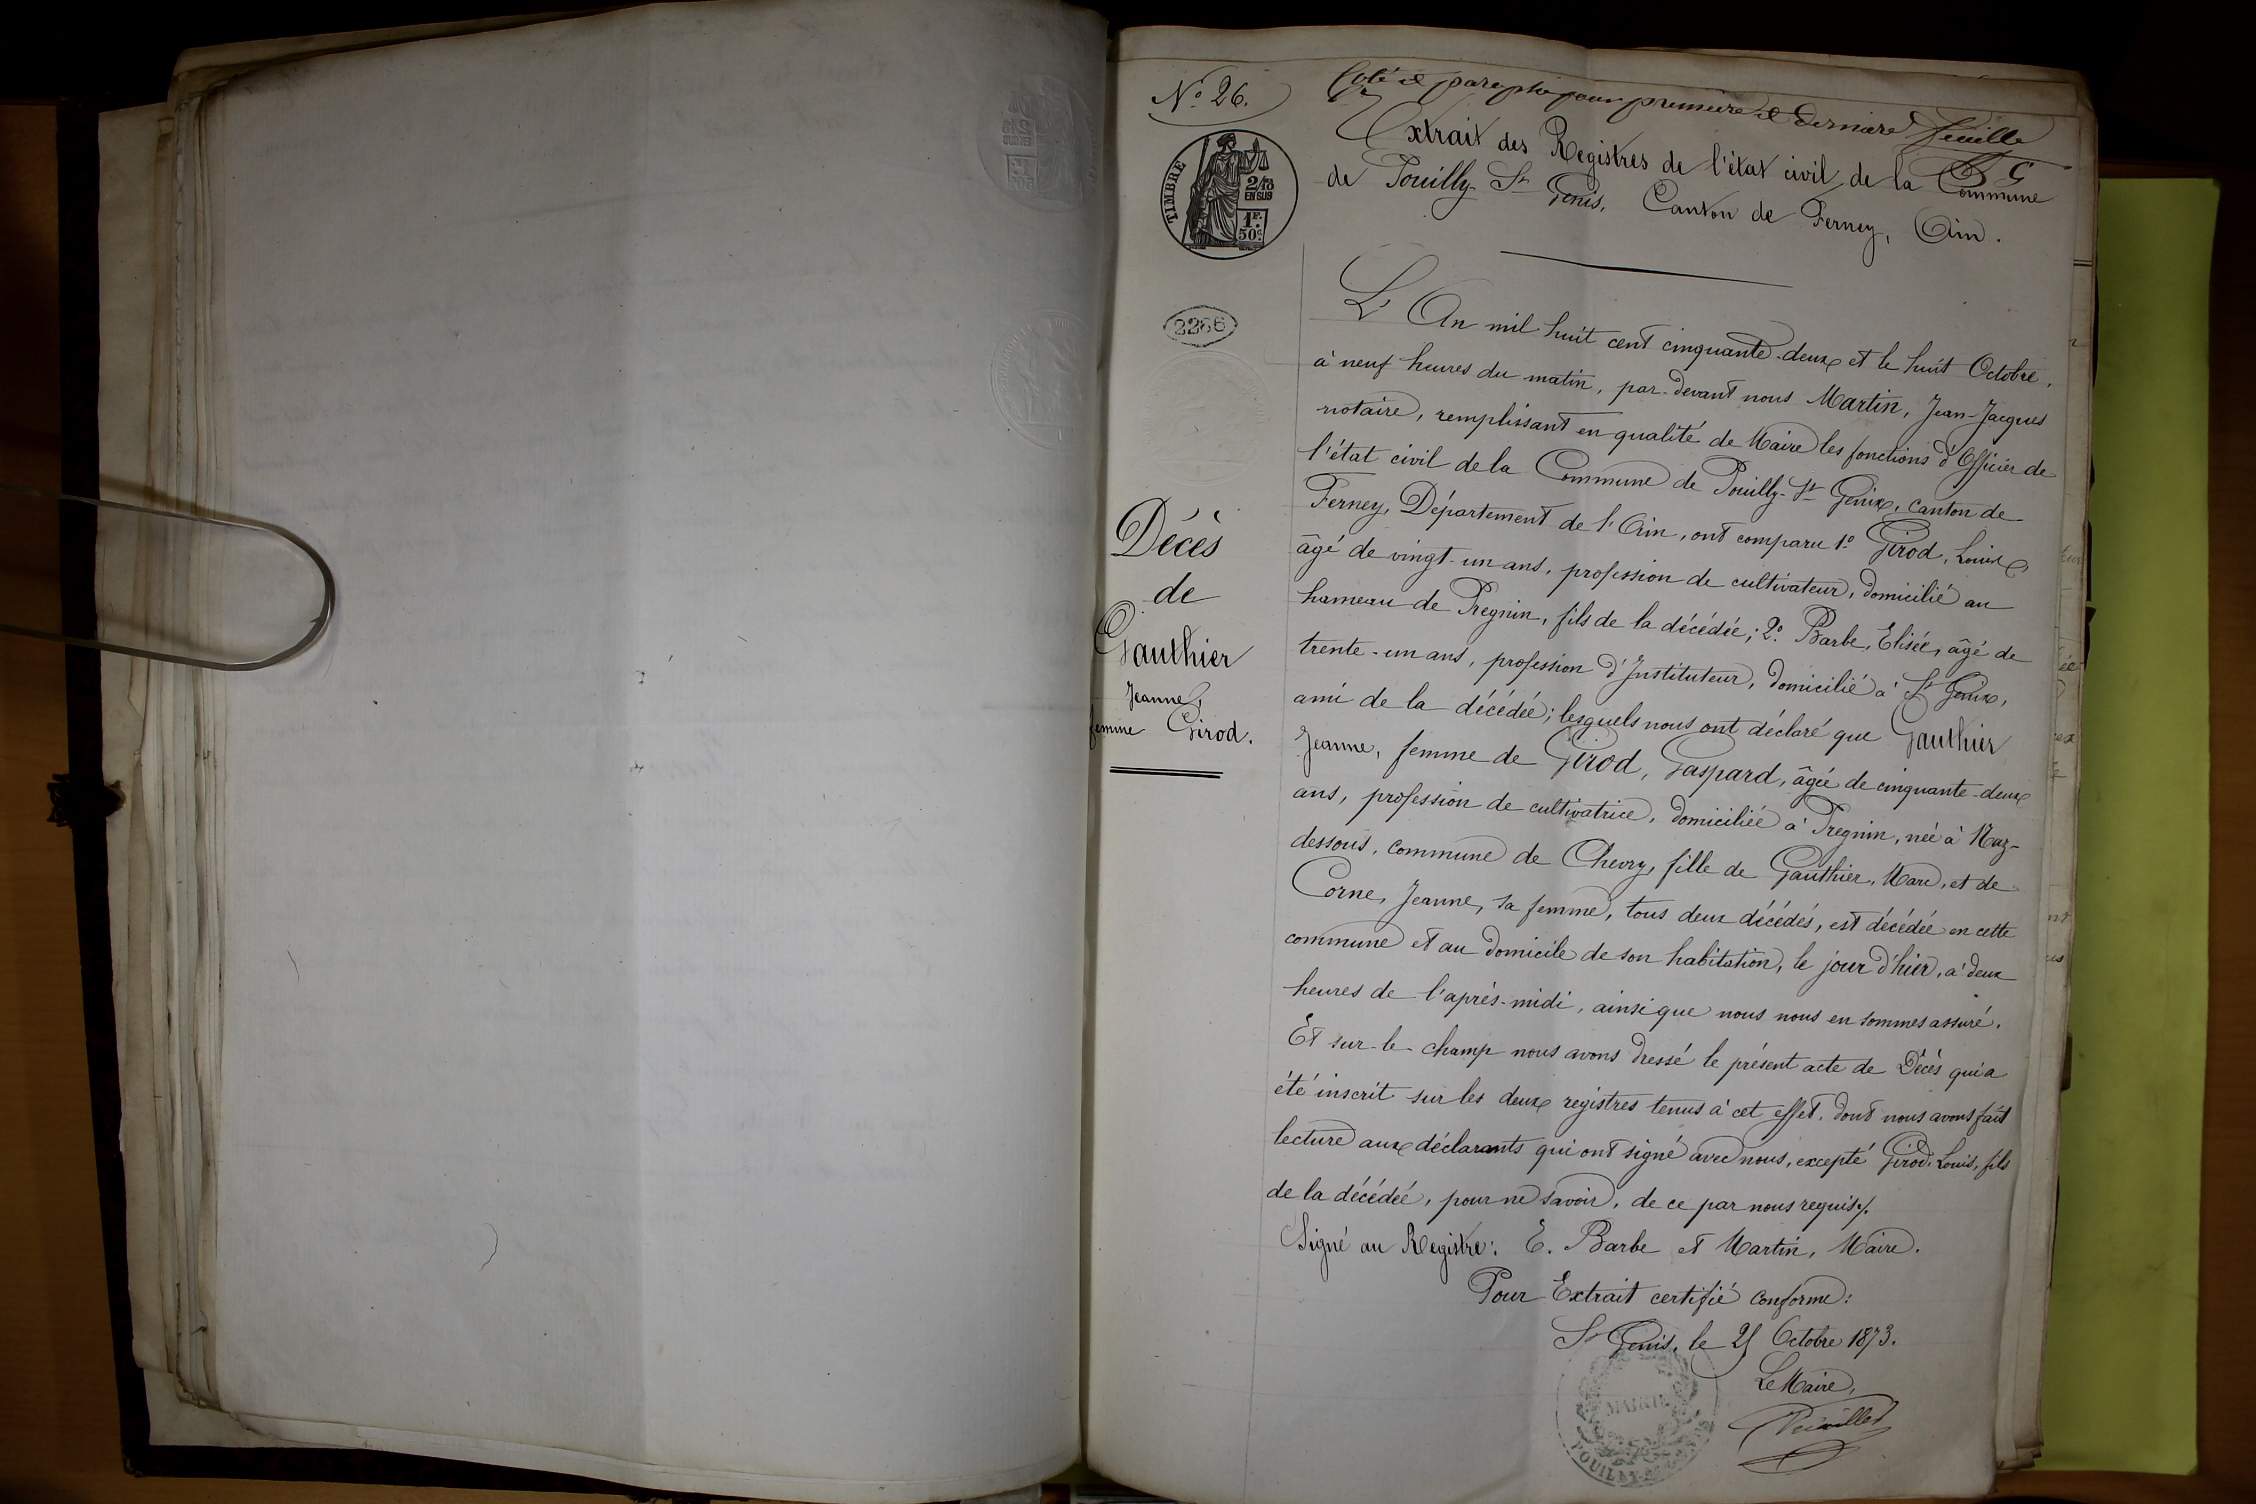 N° 26.
Coté et paraphé pour première et dernière feuille
Extrait des Registres de l'état civil de la Commune
de Pouilly-St Genis, Canton de Ferney, Ain.
TIMBRE
2/10
EN SUS
1F.
50c
2286
L'An mil huit cent cinquante-deux et le huit Octobre,
à neuf heures du matin, par-devant nous Martin, Jean-Jacques
notaire, remplissant en qualité de Maire les fonctions d'Officier de
l'état civil de la Commune de Pouilly-St Genix, canton de
Ferney, Département de l'Ain, ont comparu 1° Girod, Louis,
âgé de vingt-un ans, profession de cultivateur, domicilié au
hameau de Pregnin, fils de la décédée; 2° Barbe, Elisée, âgé de
trente-un ans, profession d'Instituteur, domicilié à St Genix,
ami de la décédée; lesquels nous ont déclaré que Gauthier
Jeanne, femme de Girod, Gaspard, âgée de cinquante-deux
ans, profession de cultivatrice, domiciliée à Pregnin, née à Naz-
dessous, commune de Chevry, fille de Gauthier, Marc, et de
Corne, Jeanne, sa femme, tous deux décédés, est décédée en cette
commune et au domicile de son habitation, le jour d'hier, à deux
heures de l'après-midi, ainsi que nous nous en sommes assuré.
Et sur-le-champ nous avons dressé le présent acte de Décès qui a
été inscrit sur les deux registres tenus à cet effet, dont nous avons fait
lecture aux déclarants qui ont signé avec nous, excepté Girod, Louis, fils
de la décédée, pour ne savoir, de ce par nous requis.
Signé au Registre: E. Barbe et Martin, Maire.
Pour Extrait certifié conforme:
St Genis, le 21 Octobre 1873.
Le Maire,
MAIRIE
Décès
de
Gauthier
Jeanne,
femme Girod.